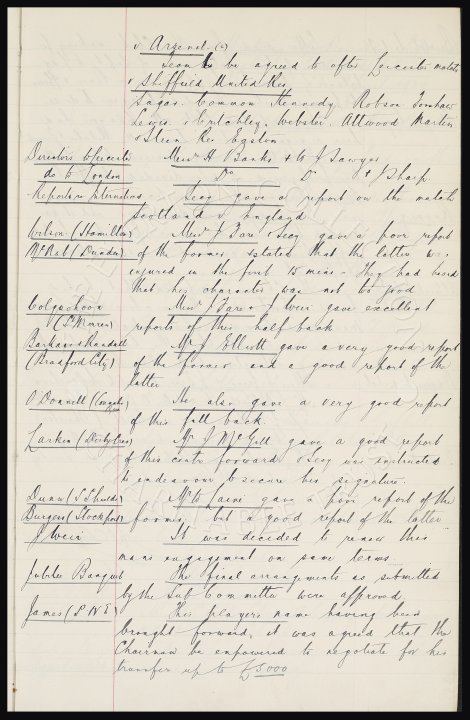 v Arsenal (a)
Team to be agreed to after Leicester match
v Sheffield United Res.
Sagar. Common Kennedy. Robson Tomkins
Lewis. Critchley, Webster. Attwood Martin
Steen Res Egston
Directors to Leicester Messrs H Banks & W J Sawyer
do to London Do Do & J Sharp
Reporters International Secy gave a report on the match
Scotland v England
Wilson (Hamilton) Messrs J Fare & Secy gave a poor report
McNab (Dundee) of the former & stated that the latter was
injured in the first 15 mins - They had heard
that his character was not too good
Colquhoun Messrs J Fare & J Weir gave excellent
(St Mirren) reports of this half back
Barkas & Randall Mr J Elliott gave a very good report
(Bradford City) of the former and a good report of the
latter
O'Donnell (Connah's Quay) He also gave a very good report
of this full back
Larkin (Derby) Mr J McGill gave a good report
of this centre forward & Secy was instructed
to endeavour to secure his signature.
Dunn (S Shields) Mr W gave a poor report of the
Burgess (Stockport) former, but a good report of the latter
J Weir It was decided to renew this
mans engagement on same terms.
Jubilee Banquet The final arrangements as submitted
by the Sub Committee were approved
James (P.N.E) This player's name having been
brought forward, it was agreed that the
Chairman be empowered to negotiate for his
transfer up to £5000